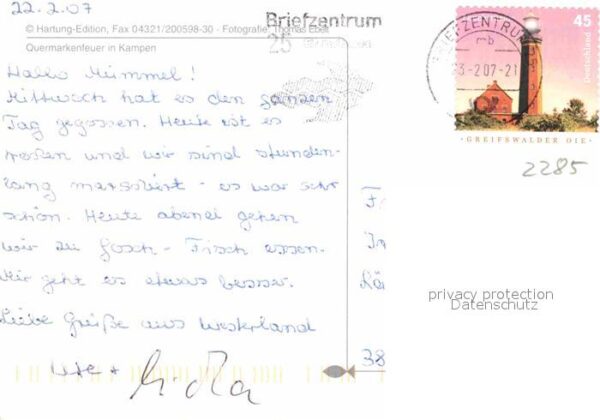 22.2.07
© Hartung-Edition, Fax 04321/200598-30 - Fotografie: Thomas Ebelt
Quermarkenfeuer in Kampen
Briefzentrum
25
BRIEFZENTRUM
mb
3-2.07-21
45
Deutschland
GREIFSWALDER OIE
2285
Hallo Mümmel!
Mittwoch hat es den ganzen
Tag gegossen. Heute ist es
trocken und wir sind stunden-
lang marschiert - es war sehr
schön. Heute abend gehen
wir zu Gosch - Fisch essen.
Mir geht es etwas besser.
Liebe Grüße aus Westerland
Ute +
38
privacy protection
Datenschutz